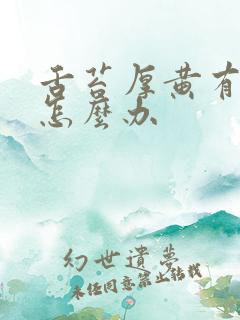 舌苔厚黄有
怎麼办
幻世遗梦
未经同意禁止转载